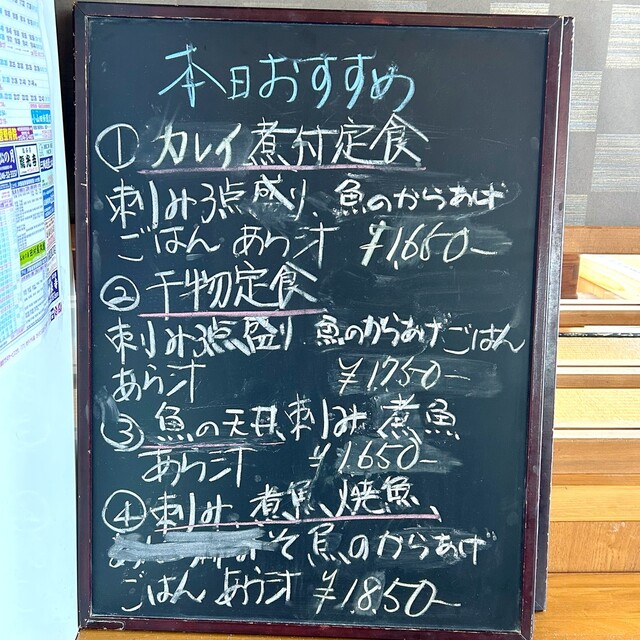 本日おすすめ
① カレイ煮付定食
刺しみ3点盛り、魚のからあげ
ごはん あら汁 ¥1,650-
② 干物定食
刺しみ3点盛り 魚のからあげ ごはん
あら汁 ¥1750-
③ 魚の天丼 刺しみ 煮魚
あら汁 ¥1.650-
④ 刺しみ、煮魚、焼魚、
みそ 魚のからあげ
ごはん あら汁 ¥1.850-